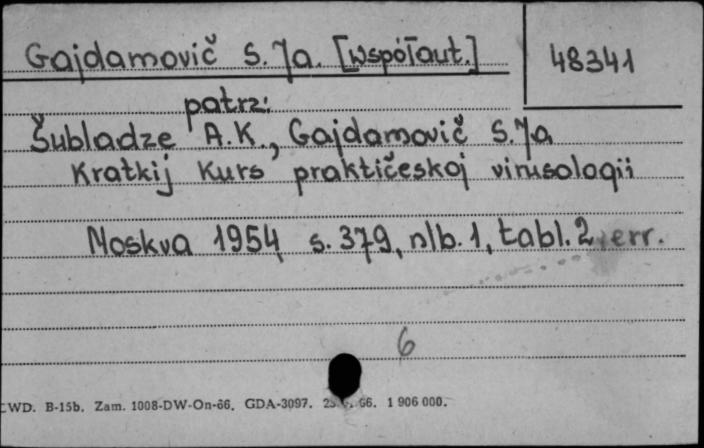 Gajdamovič S. Ja. [współaut.]
48341
patrz:
Šubladze A.K., Gajdamovič S. Ja
Kratkij kurs praktičeskoj virusologii
Moskva 1954 s. 379, nlb. 1, tabl. 2, err.
6
CWD. B-15b. Zam. 1008-DW-On-66. GDA-3097. 66. 1 906 000.